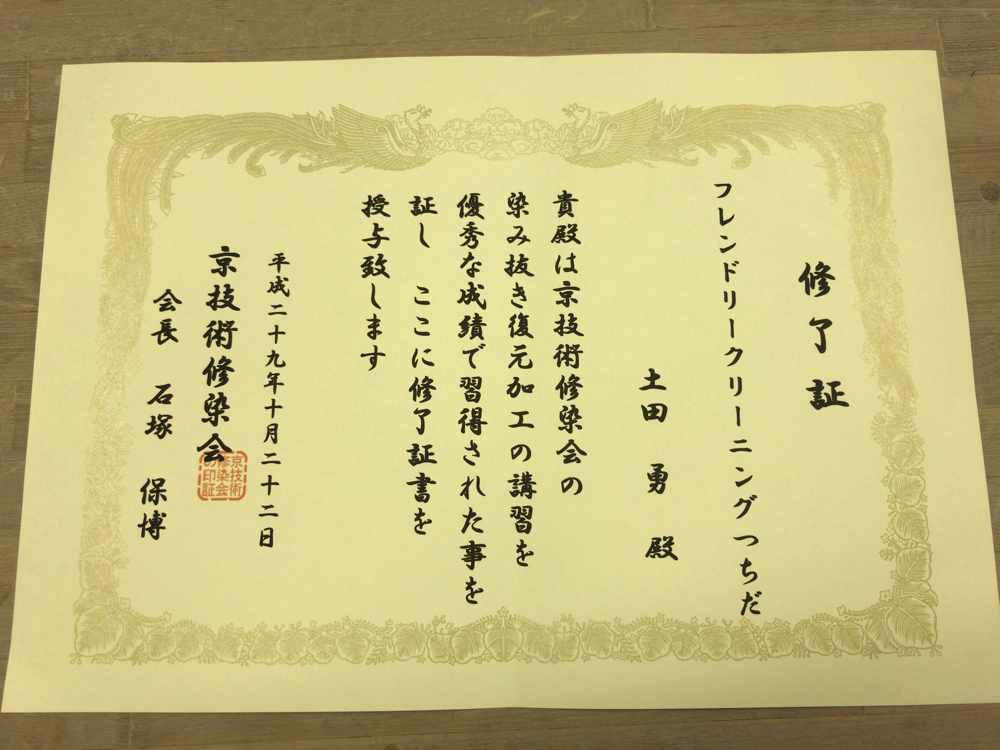 修了証
フレンドリークリーニングつちだ
土田 勇 殿
貴殿は京技術修染会の
染み抜き復元加工の講習を
優秀な成績で習得された事を
証し ここに修了証書を
授与致します
平成二十九年十月二十二日
京技術修染会
京技術
修染会
の印証
会長 石塚 保博